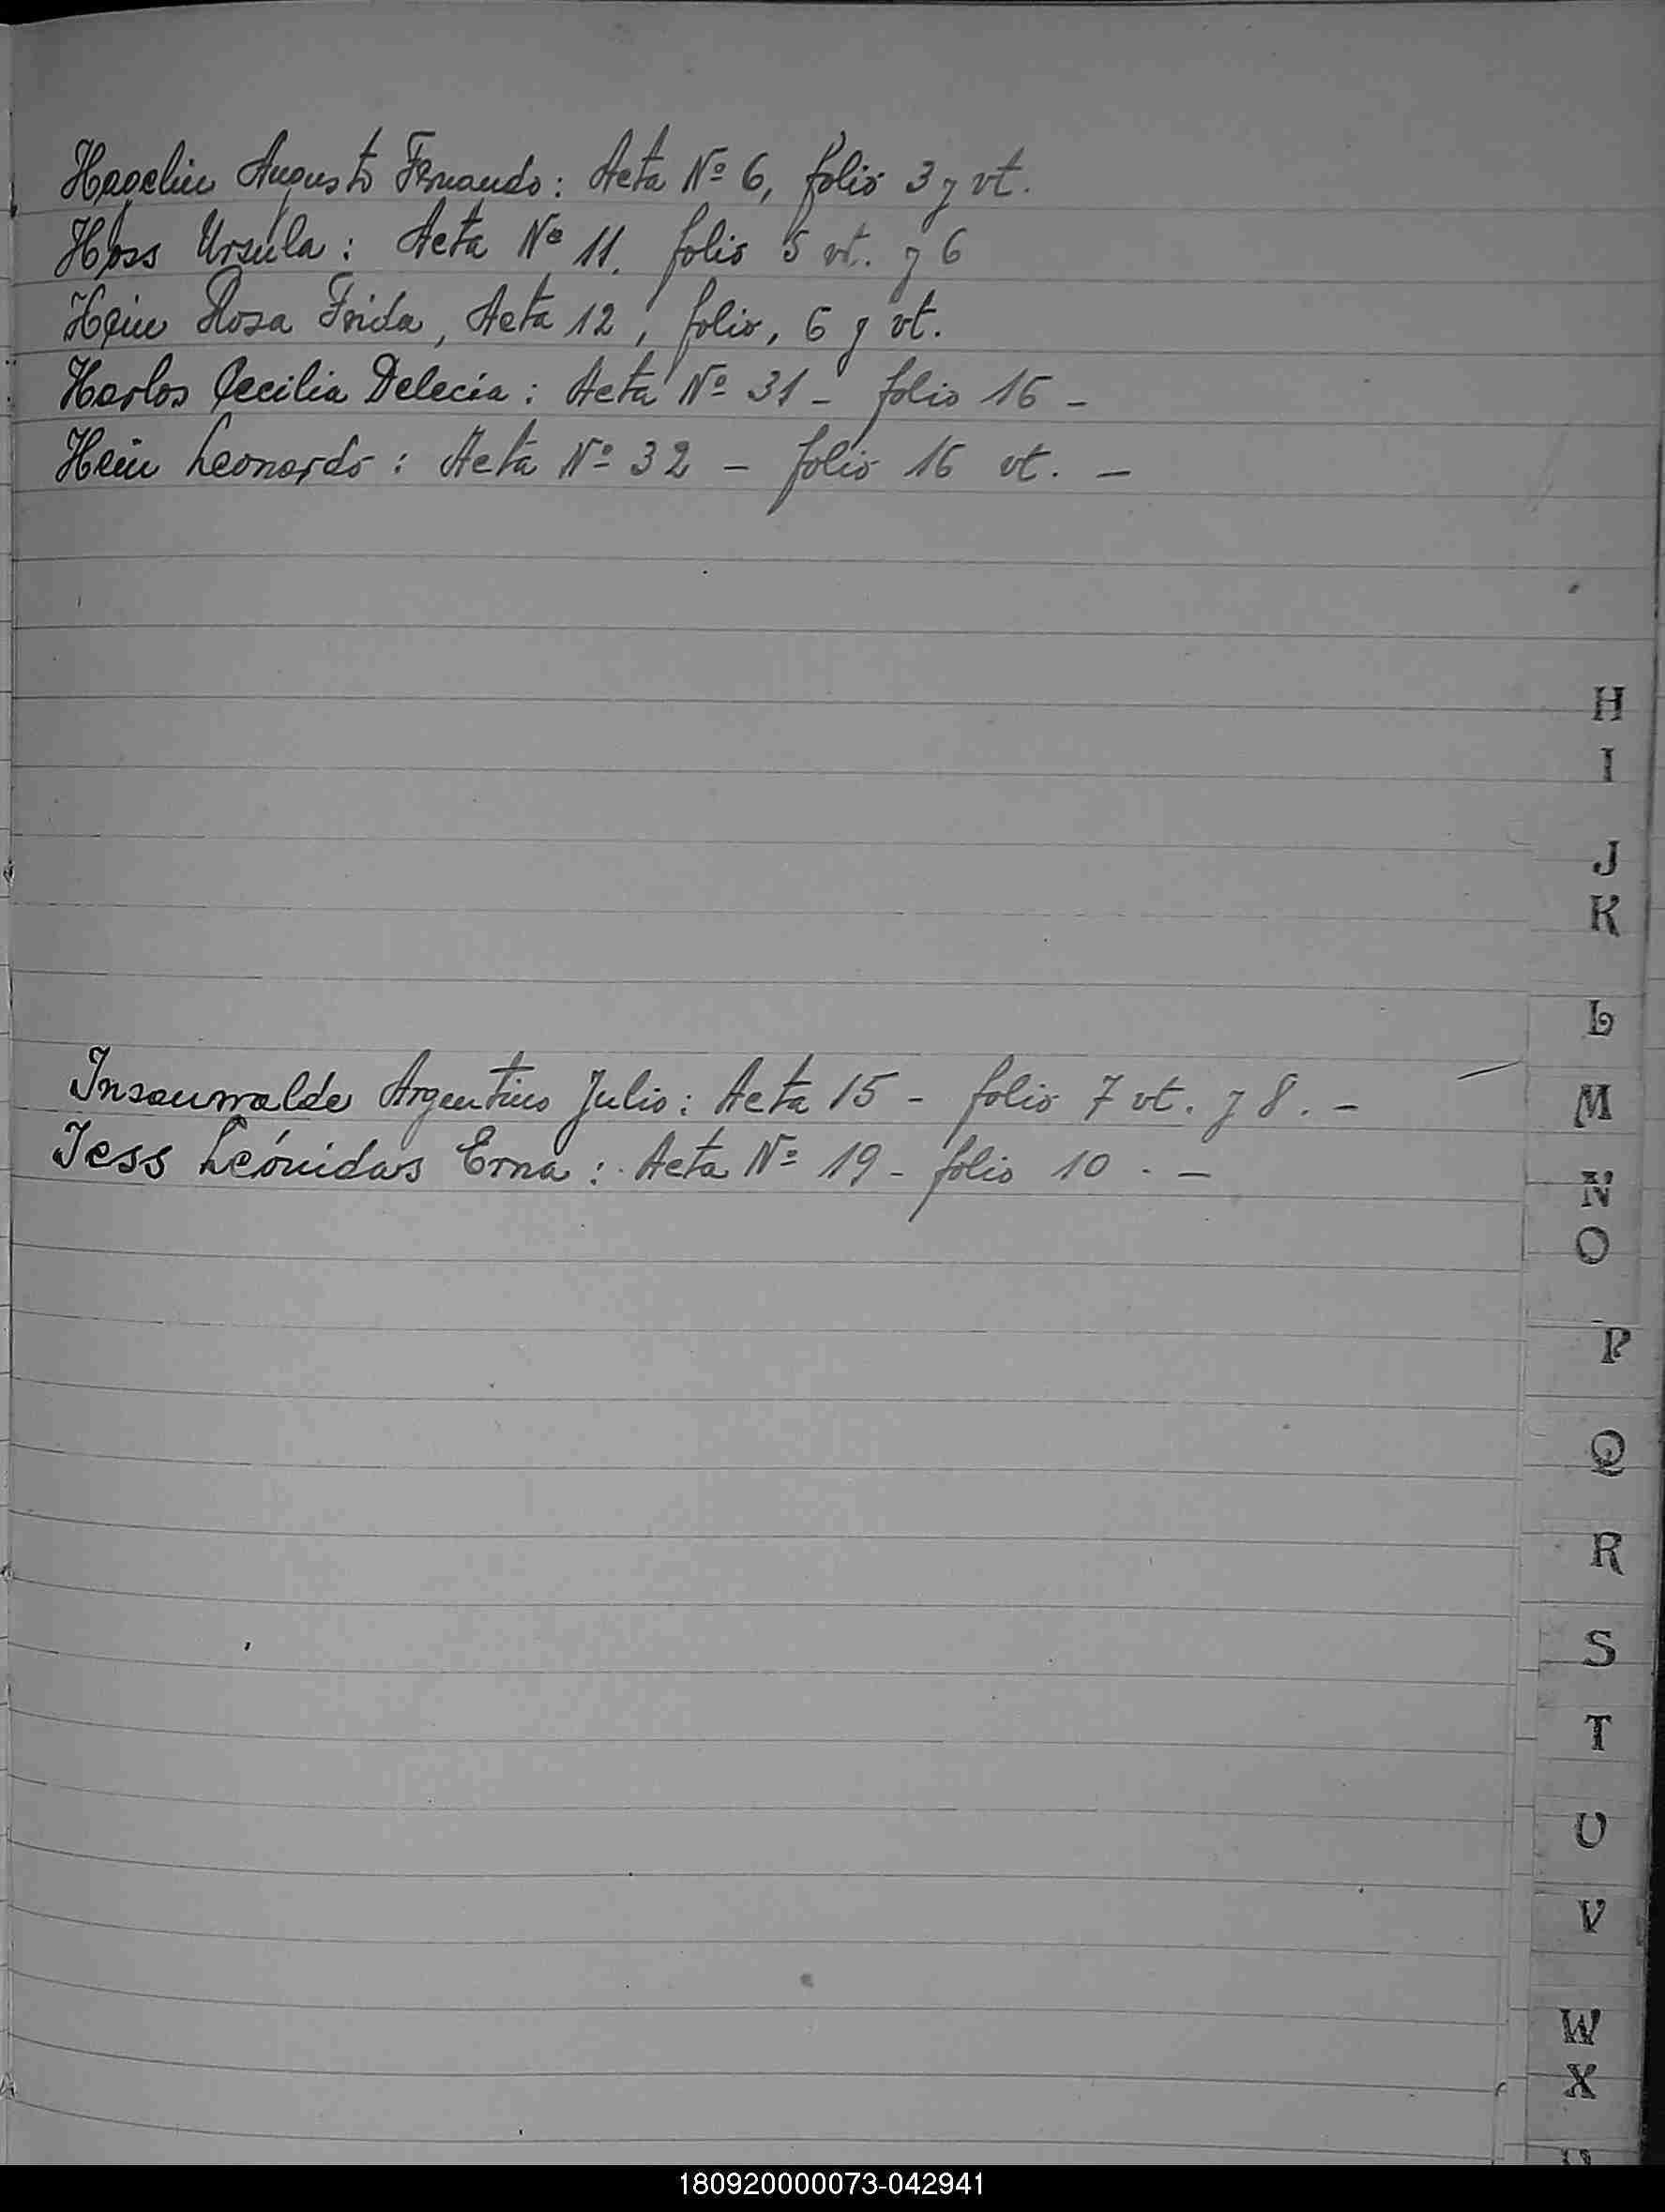 Hagelin Augusto Fernando: Acta Nº 6, folio 3 y vt.
Hoss Ursula: Acta Nº 11, folio 5 vt. y 6
Hein Rosa Frida, Acta 12, folio, 6 y vt.
Harlos Cecilia Delecia: Acta Nº 31 - folio 16 -
Hein Leonardo: Acta Nº 32 - folio 16 vt. -
H
I
J
K
L
Insaurralde Argentino Julio: Acta 15 - folio 7 vt. y 8. -
M
Jess Leónidas Erna: Acta Nº 19 - folio 10 . -
N
O
P
Q
R
S
T
U
V
W
X
180920000073-042941